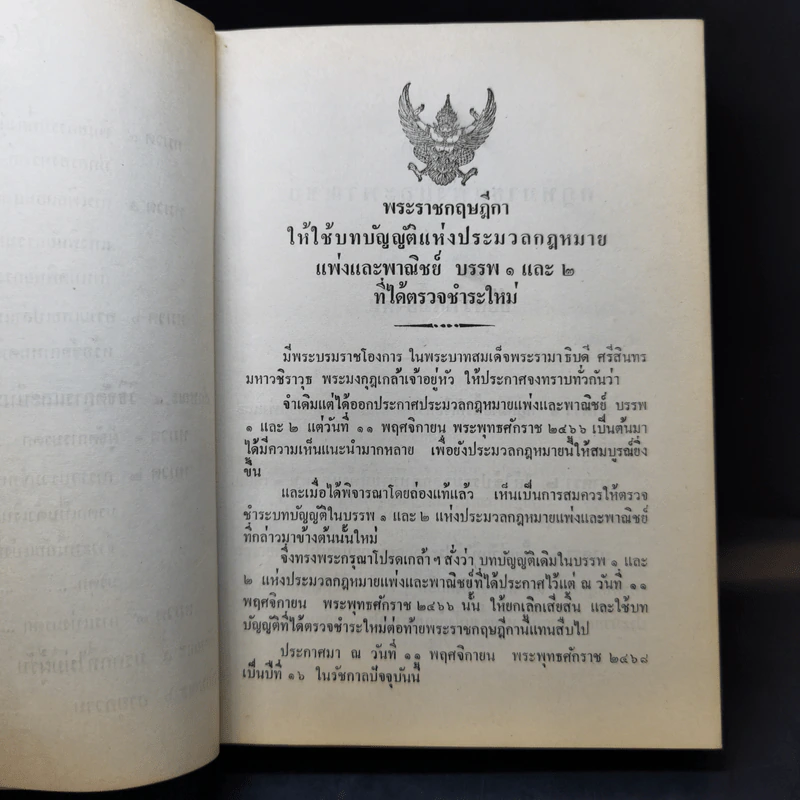 พระราชกฤษฎีกา
ให้ใช้บทบัญญัติแห่งประมวลกฎหมาย
แพ่งและพาณิชย์ บรรพ ๑ และ ๒
ที่ได้ตรวจชำระใหม่
มีพระบรมราชโองการ ในพระบาทสมเด็จพระรามาธิบดี ศรีสินทร
มหาวชิราวุธ พระมงกุฎเกล้าเจ้าอยู่หัว ให้ประกาศจงทราบทั่วกันว่า
จำเดิมแต่ได้ออกประกาศประมวลกฎหมายแพ่งและพาณิชย์ บรรพ
๑ และ ๒ แต่วันที่ ๑๑ พฤศจิกายน พระพุทธศักราช ๒๔๖๖ เป็นต้นมา
ได้มีความเห็นแนะนำมากหลาย เพื่อยังประมวลกฎหมายนี้ให้สมบูรณ์ยิ่ง
ขึ้น
และเมื่อได้พิจารณาโดยถ่องแท้แล้ว เห็นเป็นการสมควรให้ตรวจ
ชำระบทบัญญัติในบรรพ ๑ และ ๒ แห่งประมวลกฎหมายแพ่งและพาณิชย์
ที่กล่าวมาข้างต้นนั้นใหม่
จึ่งทรงพระกรุณาโปรดเกล้า ฯ สั่งว่า บทบัญญัติเดิมในบรรพ ๑ และ
๒ แห่งประมวลกฎหมายแพ่งและพาณิชย์ที่ได้ประกาศไว้แต่ ณ วันที่ ๑๑
พฤศจิกายน พระพุทธศักราช ๒๔๖๖ นั้น ให้ยกเลิกเสียสิ้น และใช้บท
บัญญัติที่ได้ตรวจชำระใหม่ต่อท้ายพระราชกฤษฎีกานี้แทนสืบไป
ประกาศมา ณ วันที่ ๑๑ พฤศจิกายน พระพุทธศักราช ๒๔๖๘
เป็นปีที่ ๑๖ ในรัชกาลปัจจุบันนี้